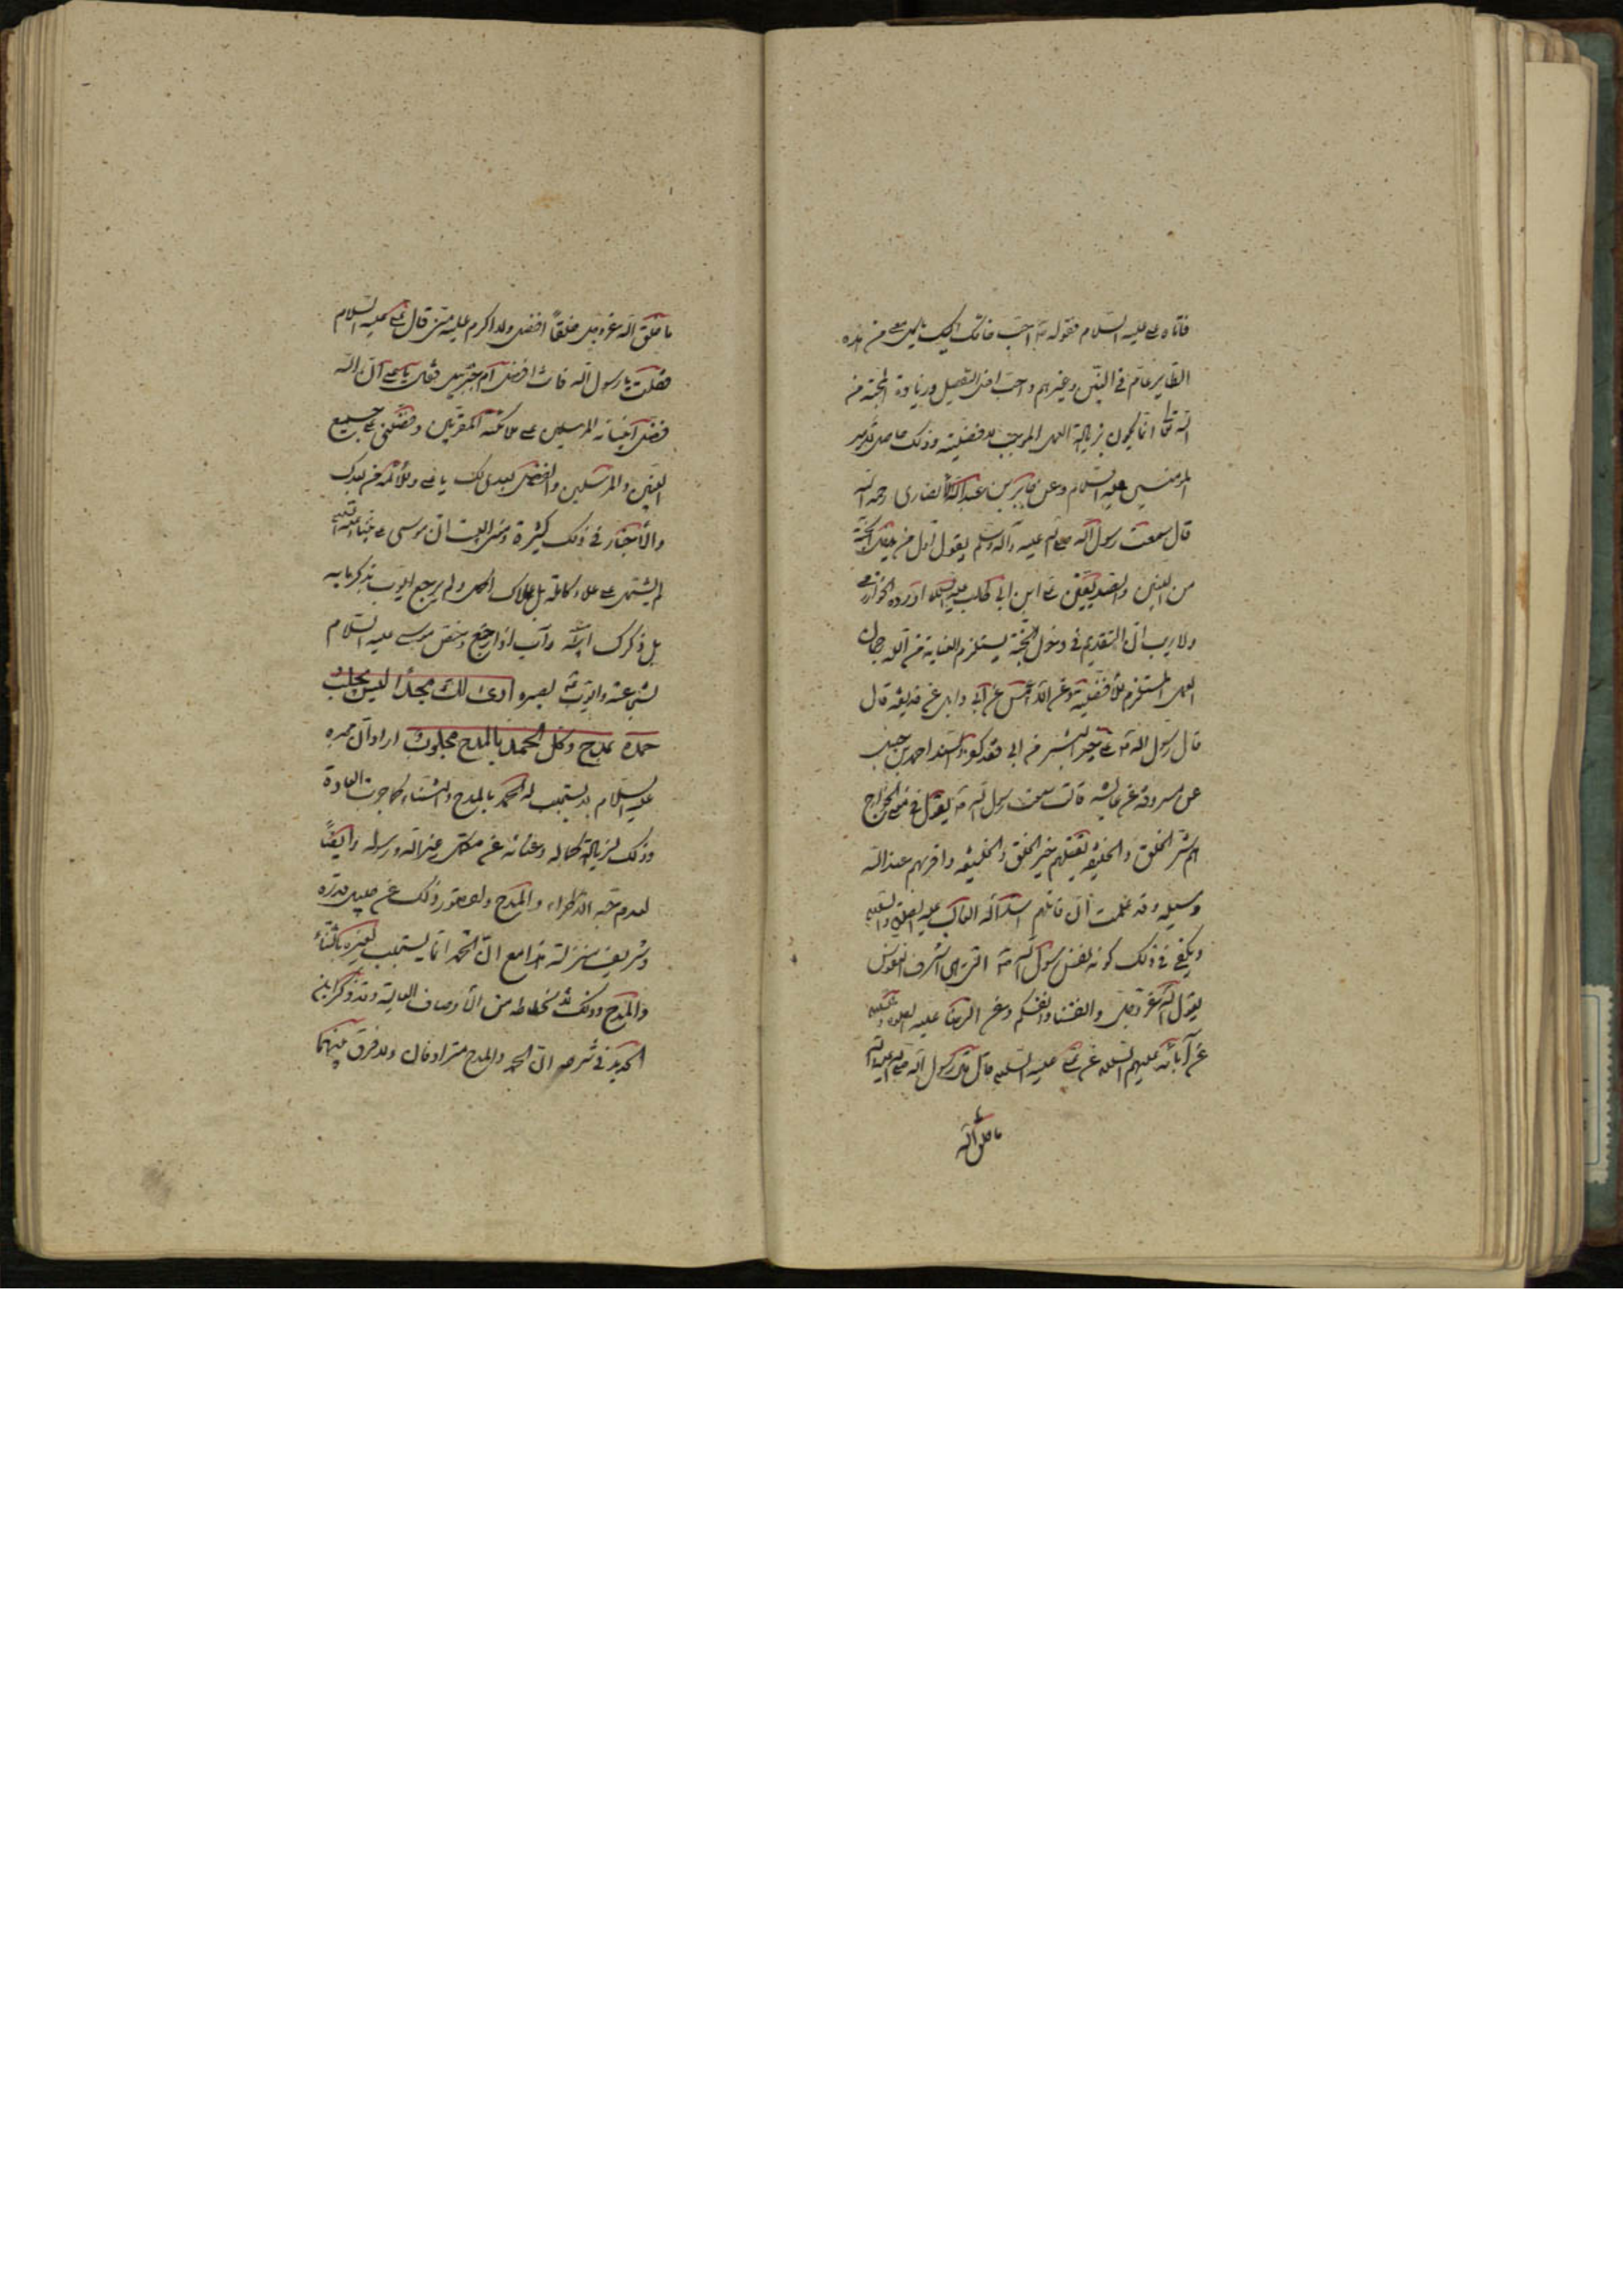 فاتاه علي عليه السلام فقوله ص احب خلقك اليك ياكل معي من هذه
الطاير عام في النبيين وغيرهم واحب افعل التفضيل وزيادة المحبة من
الله تعالى انما يكون بزيادة العمل الموجب للافضلية وذلك حاصل لامير
المؤمنين عليه السلام وعن جابر بن عبد الله الانصاري رحمه الله
قال سمعت رسول الله صلى الله عليه وآله وسلم يقول اول من يدخل الجنة
من النبيين والصديقين علي ابن ابي طالب عليه السلام اورده الخوارزمي
ولا ريب ان التقديم في دخول الجنة يستلزم العناية من الله
العمل المستلزم للأفضلية وعن الاعمش عن ابي وايل عن حذيفة قال
قال رسول الله ص علي خير البشر من ابى فقد كفر واسند احمد بن حنبل
عن مسروق عن عايشه قالت سمعت رسول الله ص يقول في الخوارج
هم شر الخلق والخليقة يقتلهم خير الخلق والخليقه واقربهم عند الله
وسيله وقد علمت ان قاتلهم اسد الله الغالب عليه الصلوة والسلام
ويكفي في ذلك كونه نفس رسول الله ص التي هي اشرف النفوس
بقول الله عز وجل وانفسنا وانفسكم وعن الرضا عليه الصلوة والسلام
عن آبائه عليهم السلام عن علي عليه السلام قال قال رسول الله صلى الله عليه وآله
ما خلق الله
ما خلق الله عز وجل خلقاً افضل ولا اكرم عليه مني قال علي عليه السلام
فقلت يا رسول الله فانت افضل ام جبرئيل فقال يا علي ان الله
فضل انبيائه المرسلين على ملائكته المقربين وفضلني على جميع
النبيين والمرسلين والفضل بعدي لك يا علي وللأئمة من بعدك
والأخبار في ذلك كثيرة ومعنى البيت ان موسى على نبينا وعليه السلام
لم يشتمل على علاء كامله بل علاك اكمل ولم يرجع ايوب بذكر ما به
بل ذكرك ابراه وآب اذا رجع وخص موسى عليه السلام
لشجاعته وايوب لصبره ارى لك مجداً ليس يجلب
حمده بمدح وكل الحمد بالمدح مجلوب اراد ان مجده
عليه السلام لا يستجلب له الحمد بالمدح والثناء كما جرت العادة
وذلك لزيادة كماله وغنائه عن مدح غير الله ورسوله وايضاً
لعدم حبه الاطراء والمدح ولا يتصور ذلك عن جليل قدره
وشريف منزلته هذا مع ان الحمد انما يستجلب لغيره بالثناء
والمدح وذلك لانحطاطه من الأوصاف العالية وقد ذكر ابن
الحديد في شرحه ان الحمد والمدح مترادفان ولا فرق بينهما